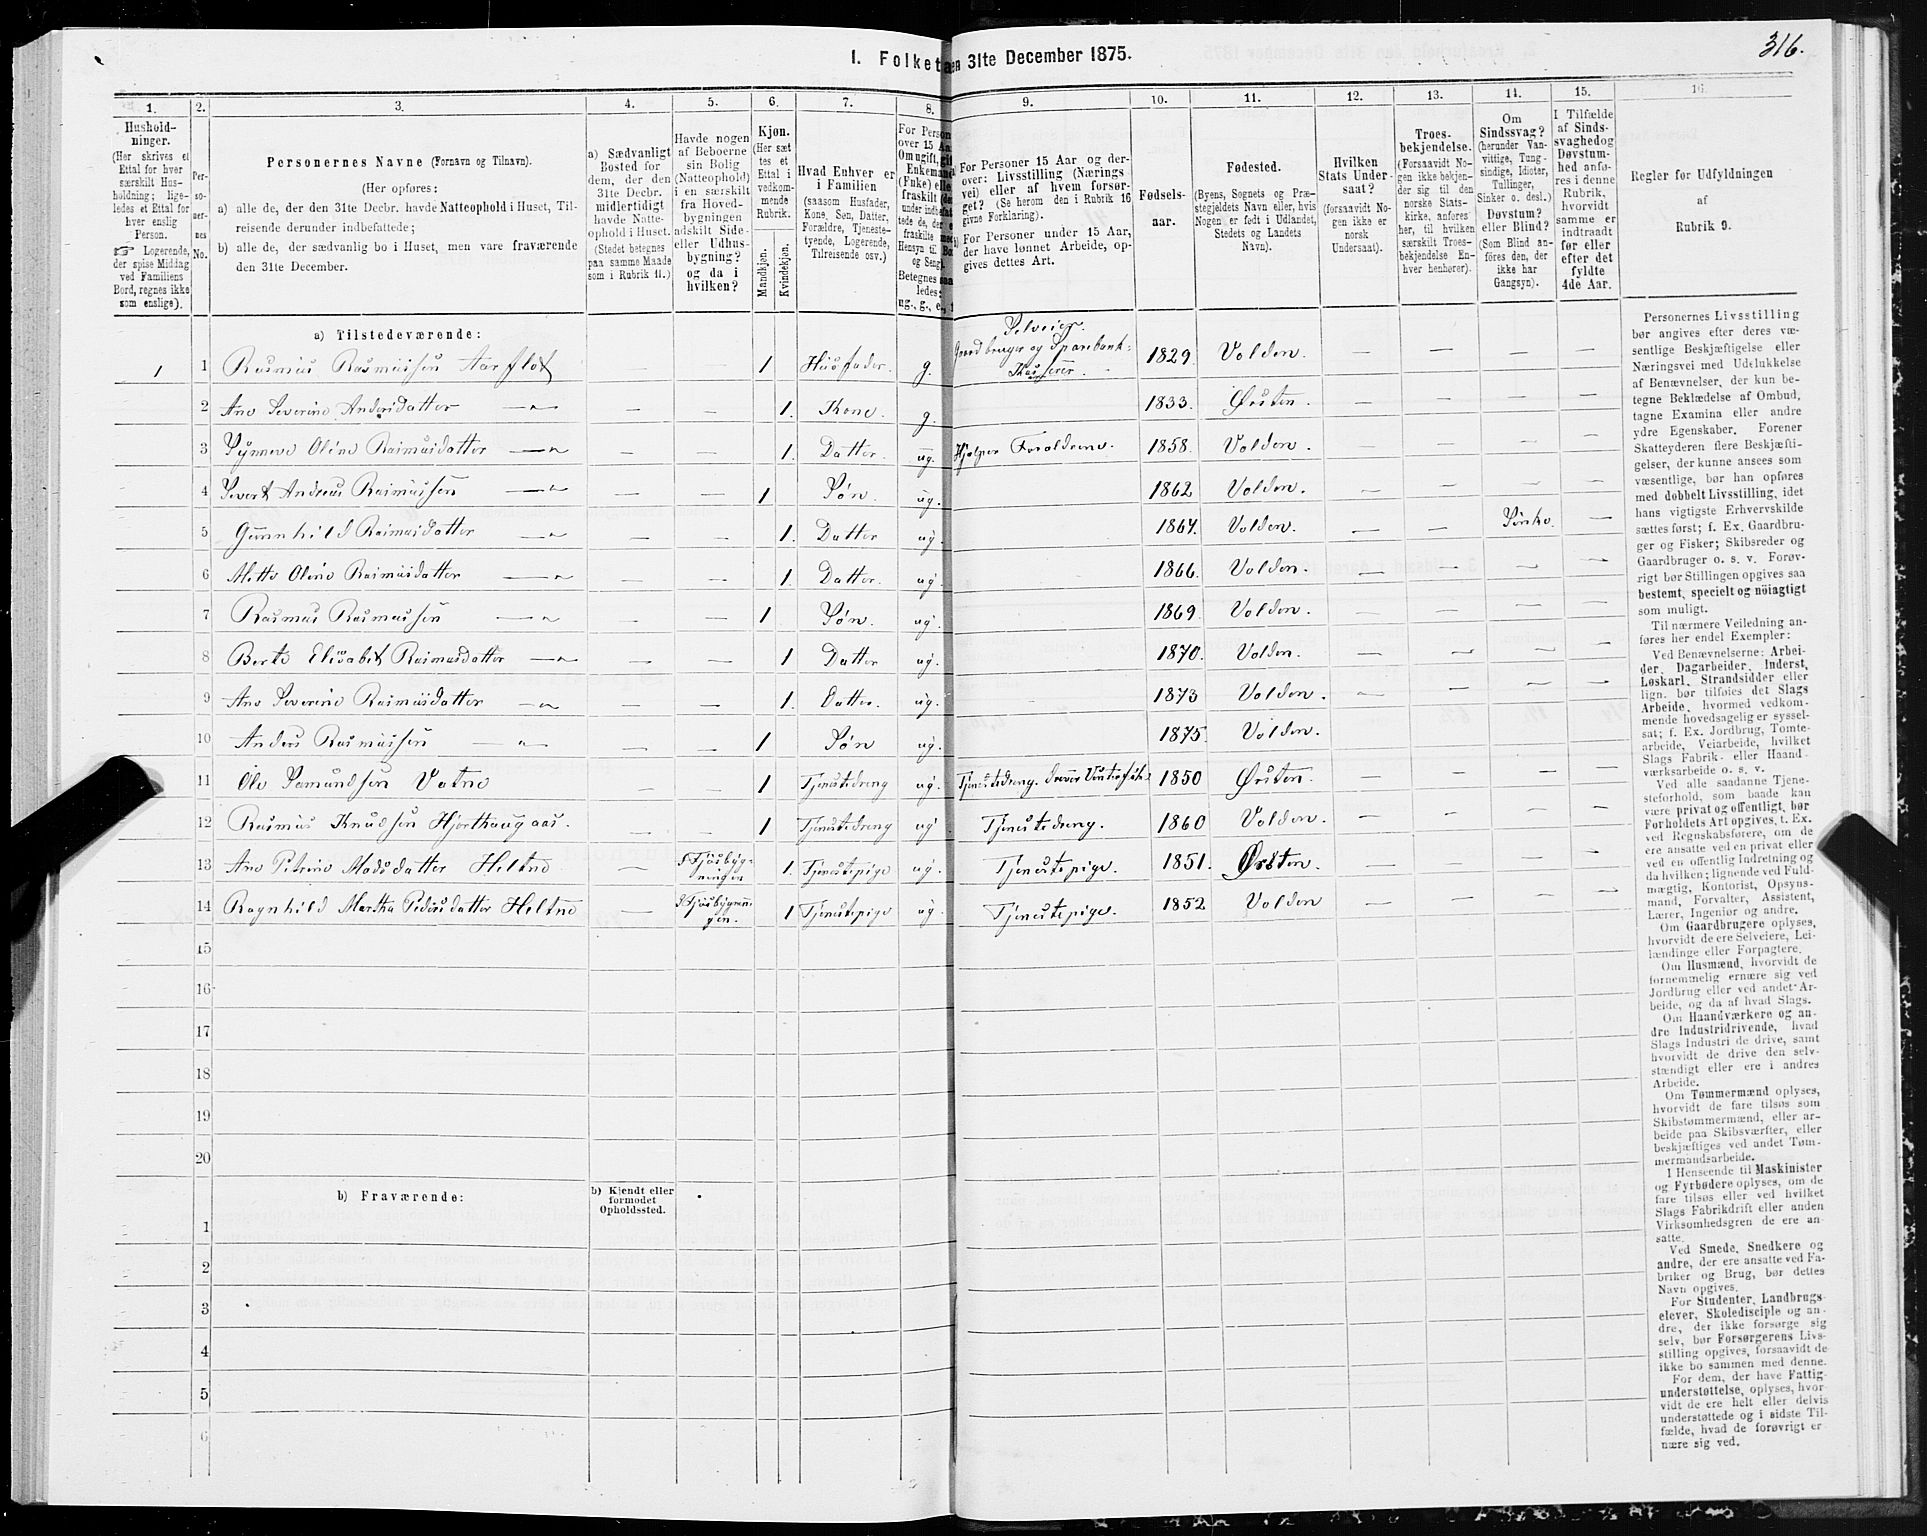 316.
I. Folketa en 31te December 1875.
1.
2.
3.
4.
5.
6.
7.
8.
9.
10.
11.
12.
13.
14.
15.
16.
Hushold-
ninger.
(Her skrives et
Ettal for hver
særskilt Hus-
holdning; lige-
ledes et Ettal for
hver enslig
Person.
☞ Logerende,
der spise Middag
ved Familiens
Bord, regnes ikke
som enslige).
Per-
so-
ner-
nes
No.
Personernes Navne (Fornavn og Tilnavn).
(Her opføres:
a) alle de, der den 31te Decbr. havde Natteophold i Huset, Til-
reisende derunder indbefattede;
b) alle de, der sædvanlig bo i Huset, men vare fraværende
den 31te December.
a) Sædvanligt
Bosted for
dem, der den
31te Decbr.
midlertidigt
havde Natte-
ophold i Huset.
(Stedet betegnes
paa samme Maade
som i Rubrik 11.)
Havde nogen
af Beboerne
sin Bolig
(Natteophold)
i en særskilt
fra Hoved-
bygningen
adskilt Side-
eller Udhus-
bygning?
og da i
hvilken?
Kjøn.
(Her sæt-
tes et
Ettal i
vedkom-
mende
Rubrik.
Mandkjøn.
Kvindekjøn.
Hvad Enhver er
i Familien
(saasom Husfader,
Kone, Søn, Datter,
Forældre, Tjeneste-
tyende, Logerende,
Tilreisende osv.)
For Person
over 15 Aa
Om ugift, gif
Enkemand
(Fuke) elle
fraskilt (de
under indbefat
tede de, der e
fraskilte med
Hensyn til Bo
og Seng).
Betegnes saa
ledes:
ug., g., e., f
For Personer 15 Aar og der-
over: Livsstilling (Nærings
vei) eller af hvem forsør-
get? (Se herom den i Rubrik 16
givne Forklaring).
For Personer under 15 Aar,
der have lønnet Arbeide, op-
gives dettes Art.
Fødsels-
aar.
Fødested.
(Byens, Sognets og Præ-
stegjeldets Navn eller, hvis
Nogen er født i Udlandet,
Stedets og Landets
Navn).
Hvilken
Stats Under-
saat?
(forsaavidt No-
gen ikke er
norsk
Undersaat).
Troes-
bekjendelse.
(Forsaavidt No-
gen ikke bekjen-
der sig til den
norske Stats-
kirke, anføres
her, til hvilken
særskilt Troes-
bekjendelse En-
hver henhører).
Om
Sindssvag?
(herunder Van-
vittige, Tung-
sindige, Idioter,
Tullinger,
Sinker o. desl.)
Døvstum?
eller Blind?
(Som Blind an-
føres den, der
ikke har
Gangsyn).
I Tilfælde
af Sinds-
svaghed og
Døvstum-
hed anfø-
res i denne
Rubrik,
hvorvidt
samme er
indtraadt
før eller
efter det
fyldte
4de Aar.
Regler for Udfyldningen
af
Rubrik 9.
a) Tilstedeværende:
1 1 Rasmus Rasmussen Aarflot — — 1 Husfader. g. Selveier. Gaardbruger og Sparebank-Kasserer. 1829. Volden. — — — —
2 Ane Severine Andersdatter —„— — — 1. Kone. g. 1833. Ørsten. — — — —
3 Synneve Oline Rasmusdatter —„— — — 1. Datter. ug. Hjelper Forældrene. 1858. Volden. — — — —
4 Severt Andreas Rasmussen —„— — — 1 Søn. ug. 1862 Volden. — — — —
5 Gunnhild Rasmusdatter —„— — — 1. Datter ug. 1864. Volden. — — Sinke. —
6 Mette Oline Rasmusdatter —„— — — 1. Datter. ug. 1866. Volden. — — — —
7 Rasmus Rasmussen —„— — — 1 Søn. ug. 1869 Volden. — — — —
8 Berte Elisabet Rasmusdatter —„— — — 1 Datter ug. 1870. Volden. — — — —
9 Ane Severine Rasmusdatter —„— — — 1. Datter. ug. 1873 Volden. — — — —
10 Anders Rasmussen —„— — — 1 Søn ug. 1875. Volden. — — — —
11 Ole Samundsen Vatne — — 1 Tjenestedreng ug. Tjenestedreng. 1850 Ørsten. — — — —
12 Rasmus Knudsen Hjorthaugaas. — — 1 Tjenestedreng ug. Tjenestedreng. 1860 Volden. — — — —
13 Ane Petrine Madsdatter Heltne — I Fjøsbygningen 1. Tjenestepige ug. Tjenestepige. 1851. Ørsten. — — — —
14 Ragnhild Martha Pedersdatter Heltne — I Fjøsbygningen. 1 Tjenestepige ug. Tjenestepige. 1852 Volden — — — —
15
16
17
18
19
20
b) Fraværende:
b) Kjendt eller
formodet
Opholdssted.
1
2
3
4
5
6
Personernes Livsstilling
bør angives efter deres væ-
sentlige Beskjæftigelse eller
Næringsvei med Udelukkelse
af Benævnelser, der kun be-
tegne Beklædelse af Ombud,
tagne Examina eller andre
ydre Egenskaber. Forener
Skatteyderen flere Beskjæfti-
gelser, der kunne ansees som
væsentlige, bør han opføres
med dobbelt Livsstilling, idet
hans vigtigste Erhvervskilde
sættes først; f. Ex. Gaardbru-
ger og Fisker; Skibsreder og
Gaardbruger o. s. v. Forøv-
rigt bør Stillingen opgives saa
bestemt, specielt og nöiagtigt
som muligt.
Til nærmere Veiledning an-
føres her endel Exempler:
Ved Benævnelserne: Arbei-
der, Dagarbeider, Inderst,
Løskarl, Strandsidder eller
lign. bør tilføies det Slags
Arbeide, hvormed vedkom-
mende hovedsagelig er syssel-
sat; f. Ex. Jordbrug, Tomte-
arbeide, Veiarbeide, hvilket
Slags Fabrik- eller Haand-
værksarbeide o. s. v.
Ved alle saadanne Tjene-
steforhold, som baade kan
være privat og offentligt, bør
Forholdets Art opgives, t. Ex.
ved Regnskabsførere, om de
ere ansatte ved en privat eller
ved en offentlig Indretning og
da hvilken; lignende ved Fuld-
mægtig, Kontorist, Opsyns-
mand, Forvalter, Assistent,
Lærer, Ingeniør og andre.
Om Gaardbrugere oplyses,
hvorvidt de ere Selveiere, Lei-
lændinge eller Forpagtere.
Om Husmænd, hvorvidt de
fornemmelig ernære sig ved
Jordbrug eller ved andet Ar-
beide, og da af hvad Slags.
Om Haandværkere og an-
dre Industridrivende, hvad
Slags Industri de drive, samt
hvorvidt de drive den selv-
stændigt eller ere i andres
Arbeide.
Om Tømmermænd oplyses,
hvorvidt de fare tilsøs som
Skibstømmermænd, eller ar-
beide paa Skibsværfter, eller
beskjæftiges ved andet Tøm-
mermandsarbeide.
I Henseende til Maskinister
og Fyrbødere oplyses, om de
fare tilsøs eller ved hvilket
Slags Fabrikdrift eller anden
Virksomhedsgren de ere an-
satte.
Ved Smede, Snedkere og
andre, der ere ansatte ved Fa-
briker og Brug, bør dettes
Navn opgives.
For Studenter, Landbrugs-
elever, Skoledisciple og an-
dre, der ikke forsørge sig
selv, bør Forsørgerens Livs-
stilling opgives, forsaavidt de
ikke bo sammen med denne.
For dem, der have Fattig-
understøttelse, oplyses, hvor-
vidt de ere helt eller delvis
understøttede og i sidste Til-
fælde, hvad de forøvrigt er-
nære sig ved.